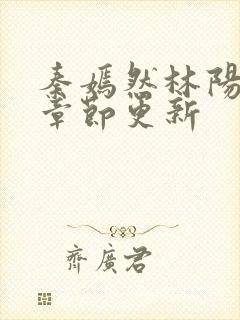 秦嫣然林陽
章節更新
齊廣君